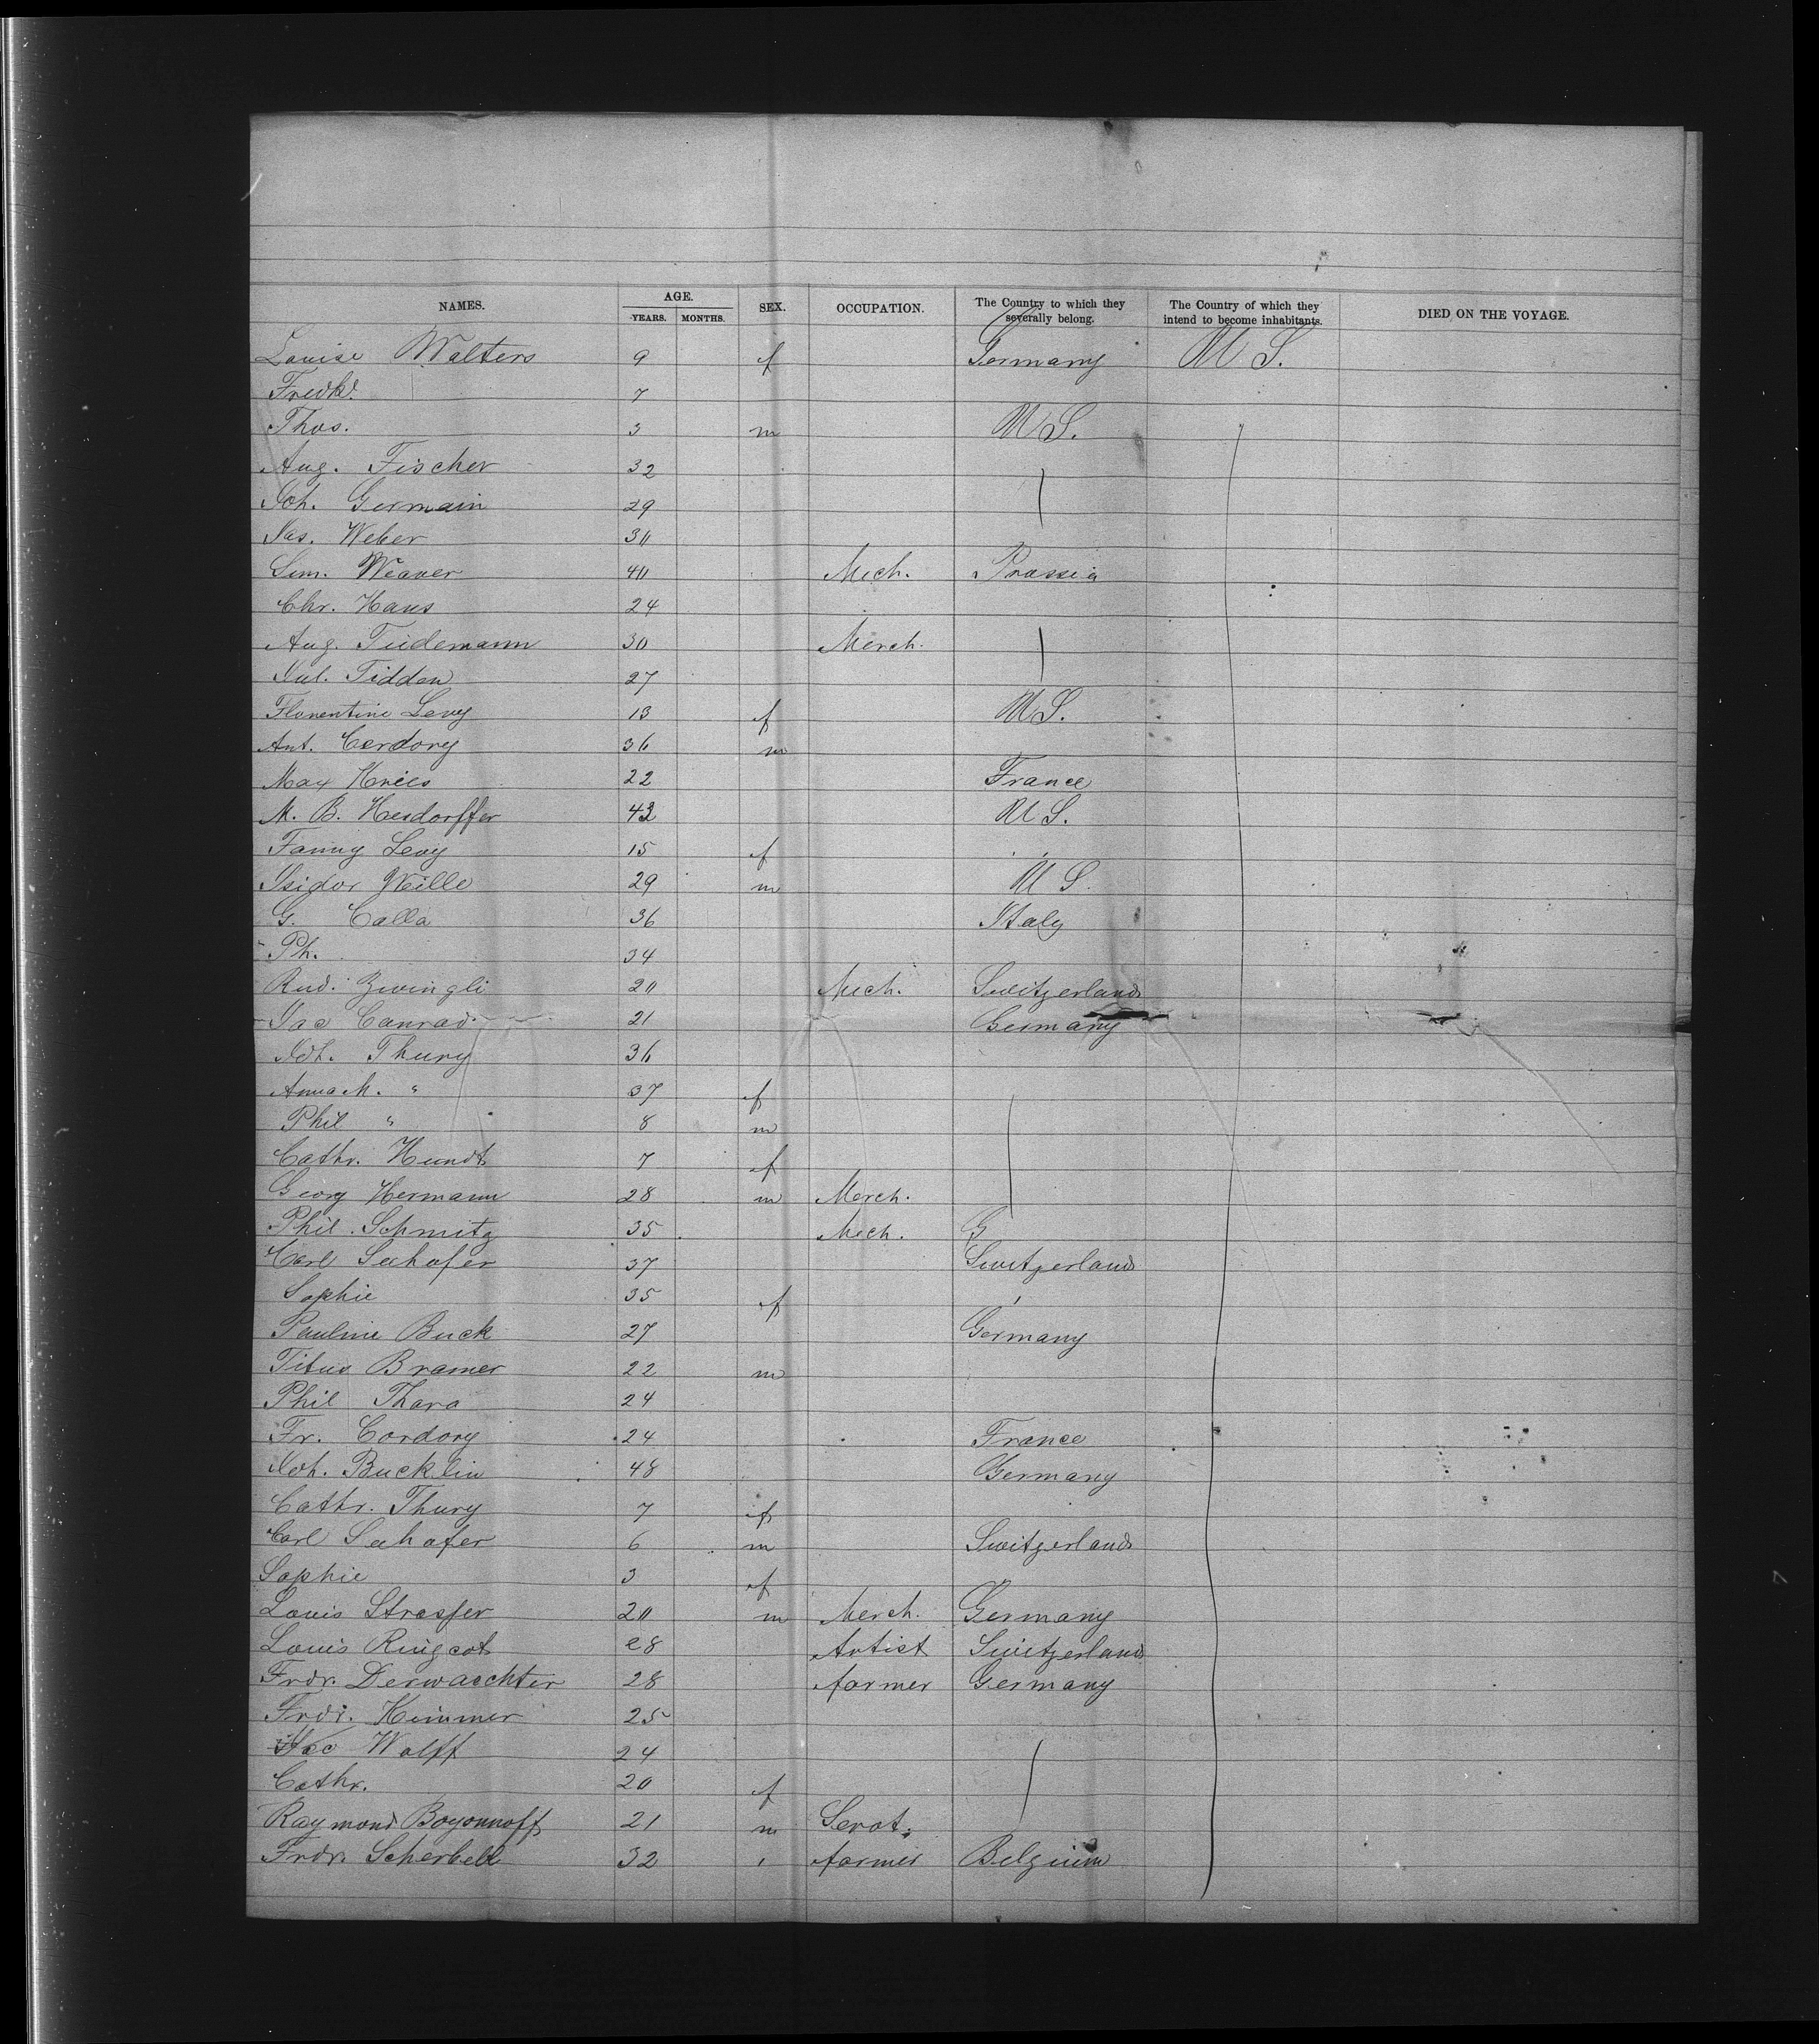 NAMES. AGE. SEX. OCCUPATION. The Country to which they severally belong. The Country of which they intend to become inhabitants. DIED ON THE VOYAGE.
YEARS. MONTHS.
Louise Walters 9 f Germany U S.
Fredk. 7
Thos. 3 m U S.
Aug. Fischer 32
Joh. Germain 29
Jas. Weber 30
Sim. Weaver 40 Mech. Prussia
Chr. Haus 24
Aug. Tiedemann 30 Merch.
Jul. Tidden 27
Florentine Levy 13 f U S.
Ant. Cerdory 36 m
Max Kries 22 France
M. B. Hersdorffer 43 U S.
Fanny Levy 15 f
Isidor Weille 29 m U S.
G. Calla 36 Italy
Ph. 34
Rud. Zwingli 20 Mech. Switzerland
Jac Conrad 21 Germany
Joh. Thury 36
Anna M. " 37 f
Phil " 8 m
Cathr. Hundt 7 f
Georg Hermann 28 m Merch.
Phil. Schmitz 35 Mech. G
Carl Seehofer 37 Switzerland
Sophie 35 f
Pauline Buck 27 Germany
Titus Bramer 22 m
Phil Thara 24
Fr. Cordory 24 France
Joh. Bucklin 48 Germany
Cathr. Thury 7 f
Carl Seehofer 6 m Switzerland
Sophie 3 f
Louis Strasser 20 m Merch. Germany
Louis Ruigcot 28 Artist Switzerland
Frdr. Derwaechter 28 farmer Germany
Frdr. Kimmer 25
Jac Wolff 24
Cathr. 20 f
Raymond Boyonnoff 21 m Servt.
Frdr. Scherbell 32 " farmer Belgium